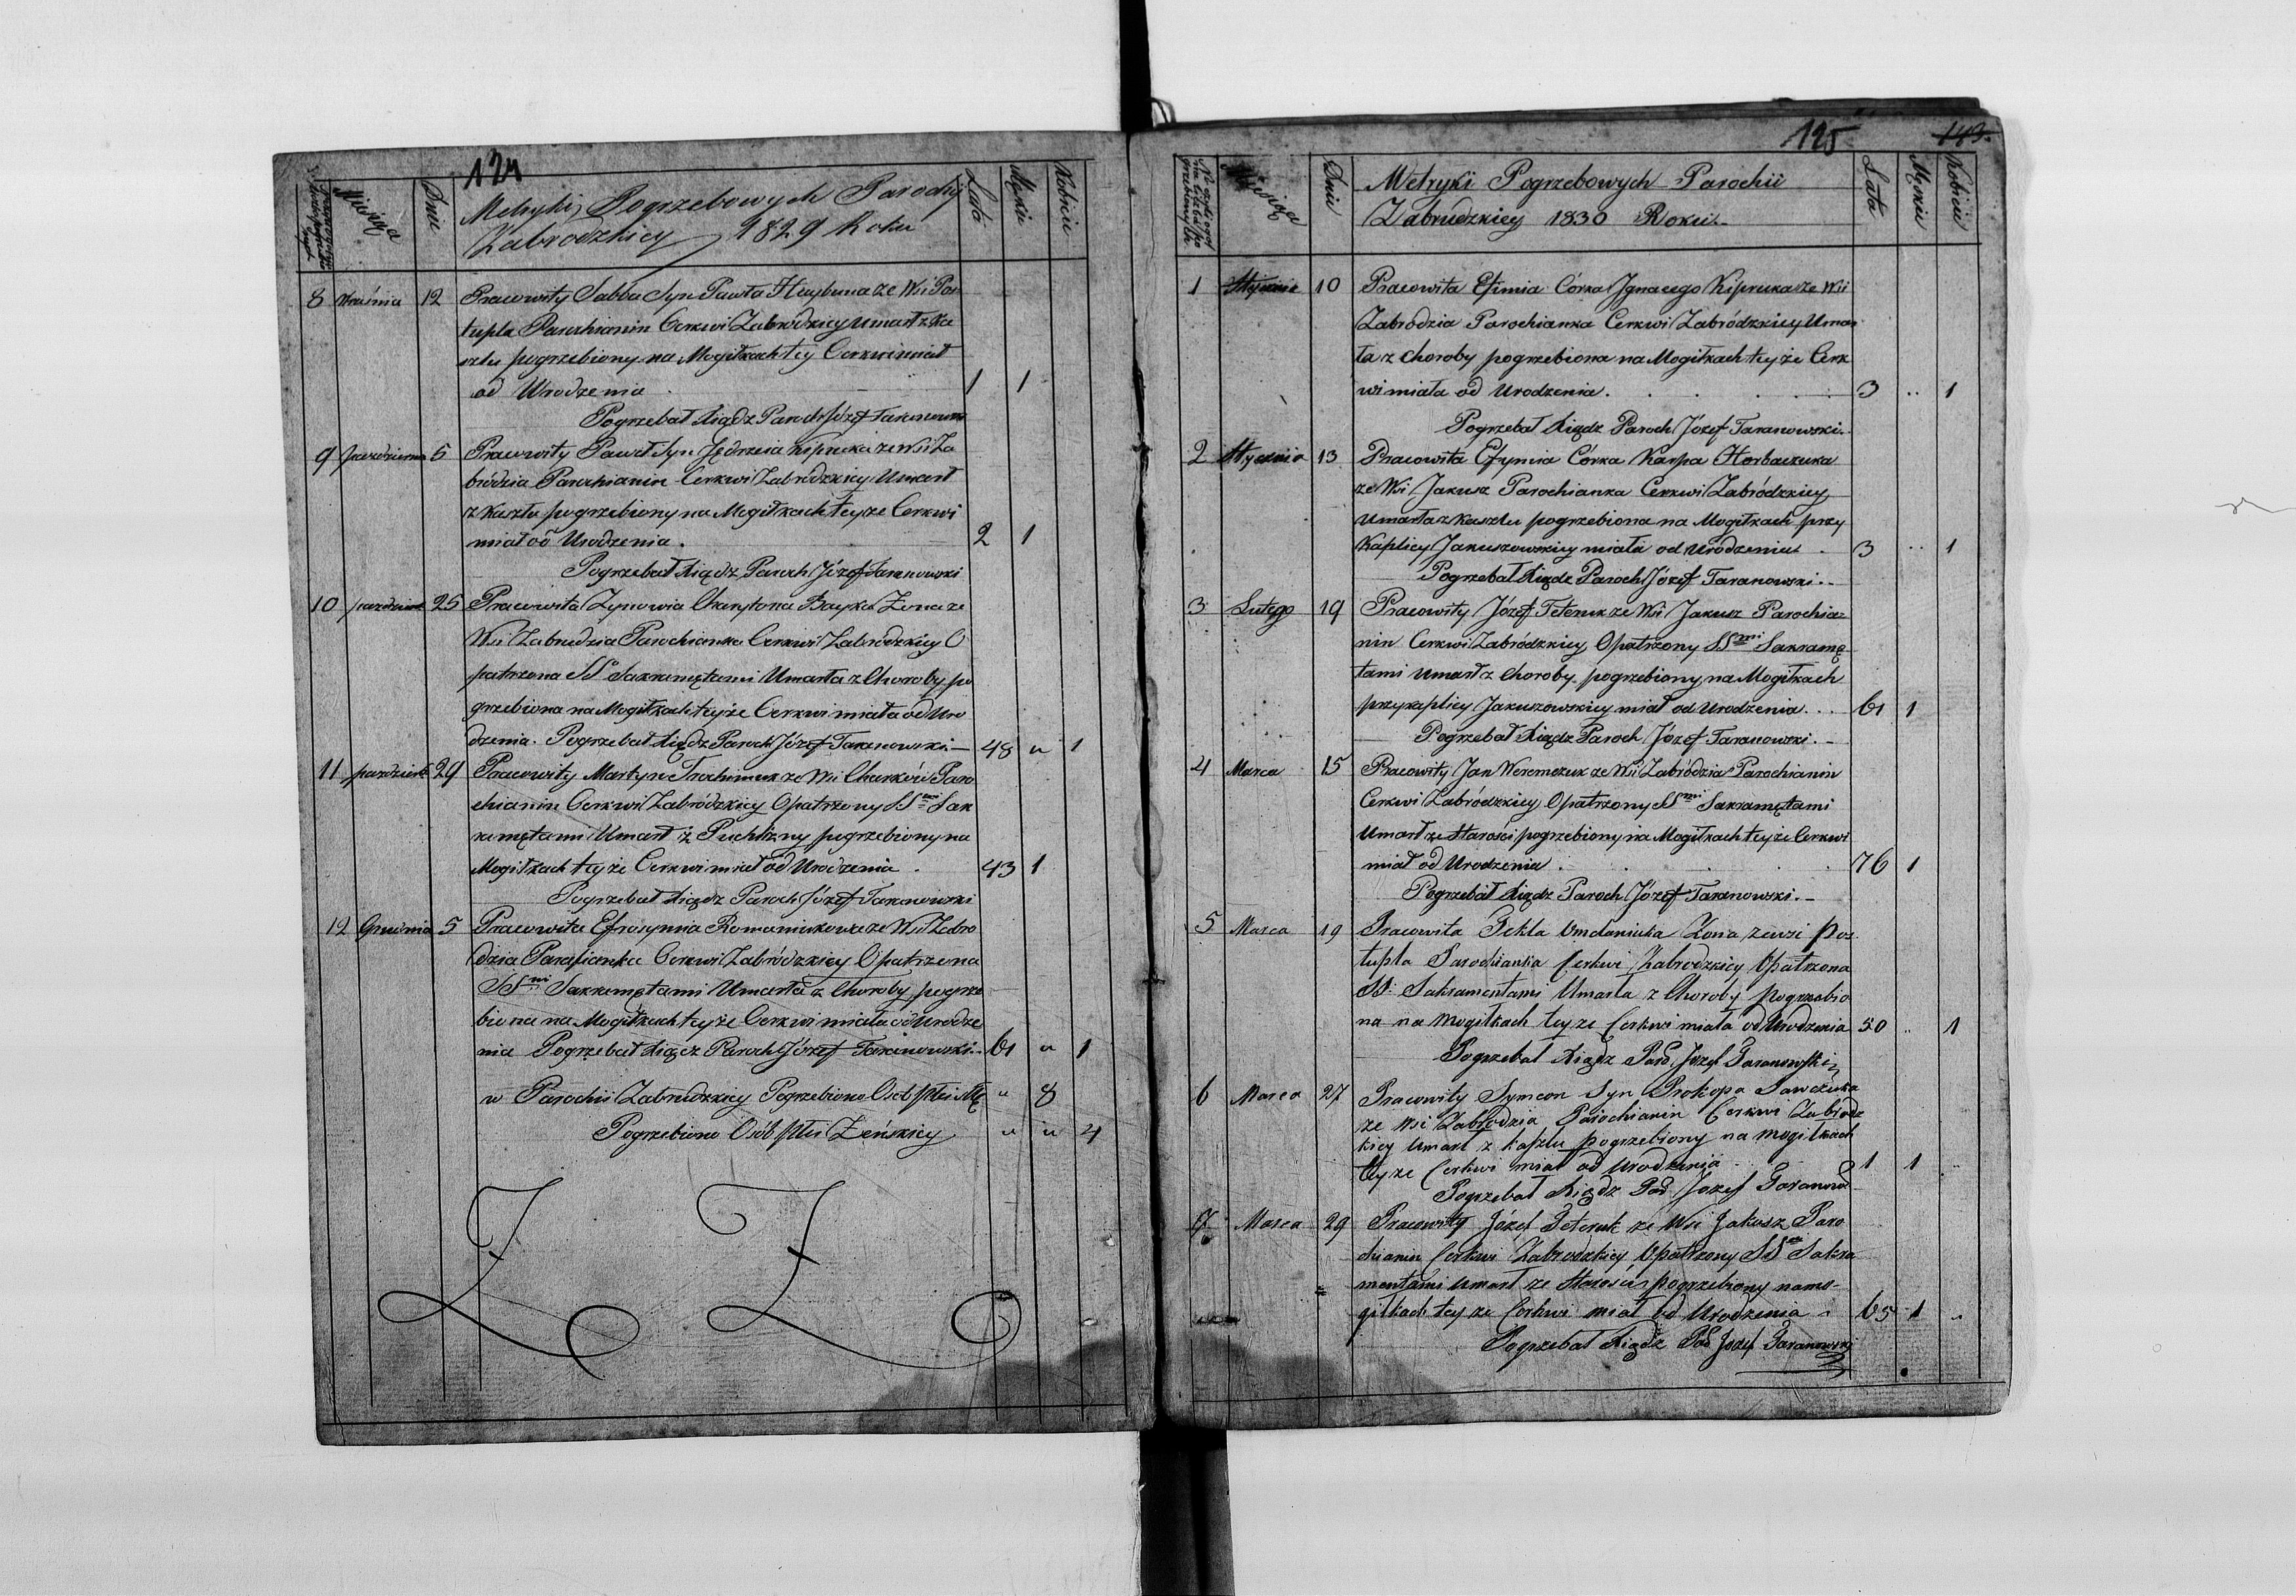 124
Miesiąca
Dnia
Metryki Pogrzebowych Parochij
Zabrodzkiey 1829 Roku
Lata
Męskie
Kobiece
8 Wrzśnia 12 Pracowity Sabba Syn Pawła Hrybuna ze Wsi Pos
tupla Parochianin Cerkwi Zabródzkiey umarł z Ka
szlu pogrzebiony na Mogiłkach tey Cerkwi miał
od Urodzenia 1 1
Pogrzebał Xiądz Paroch Józef Taranowski
9 październ 5 Pracowity Paweł Syn Jędrzeia Kipruka ze Wsi Za
bródzia Parochianin Cerkwi Zabródzkiey Umarł
z Kaszlu pogrzebiony na Mogiłkach teyże Cerkwi
miał od Urodzenia . 2 1
Pogrzebał Xiądz Paroch Józef Taranowski
10 październ 25 Pracowita Zynowia Charytona Bayka Żona ze
Wsi Zabrudzia Parochianka Cerkwi Zabródzkiey O
patrzona SS Sakramętami Umarła z Choroby po
grzebiona na Mogiłkach teyże Cerkwi miała od Uro
dzenia. Pogrzebał Xiądz Paroch Józef Taranowski.— 48 " 1
11 październ 29 Pracowity Martyn Trochimuk ze Wsi Charków Paro
chianin Cerkwi Zabródzkiey Opatrzony SSmi Sak
ramętami Umarł z Puchlizny pogrzebiony na
Mogiłkach teyże Cerkwi miał od Urodzenia . 43 1
Pogrzebał Xiądz Paroch Józef Taranowski
12 Grudnia 5 Pracowita Efrosynna Romaniukowa ze Wsi Zabro
dzia Parafianka Cerkwi Zabródzkiey Opatrzona
SSmi Sakramętami Umarła z Choroby pogrze
biona na Mogiłkach teyże Cerkwi miała od Urodze
nia Pogrzebał Xiądz Paroch Józef Taranowski.. 61 " 1
w Parochii Zabrudzkiey Pogrzebiono Osób płci Mę " 8
Pogrzebiono Osób płci Żeńskiey " " 4
125
143.
Miesiąca
Dnia
Metryki Pogrzebowych Parochii
Zabrudzkiey 1830 Roku.
Lata
Męskie
Kobiece
1 Stycznia 10 Pracowita Efimia Córka Jgnacego Kipruka ze Wsi
Zabrodzia Parochianka Cerkwi Zabródzkiey Umar
ła z choroby pogrzebiona na Mogiłkach teyże Cerk
wi miała od Urodzenia. 3 .. 1
Pogrzebał Xiądz Paroch Józef Taranowski..
2 Stycznia 13 Pracowita Efymia Córka Karpa Horbaczuka
ze Wsi Jakusz Parochianka Cerkwi Zabródzkiey
Umarła z Kaszlu pogrzebiona na Mogiłkach przy
Kaplicy Jakuszowskiey miała od Urodzenia . 3 .. 1
Pogrzebał Xiądz Paroch Józef Taranowski..
3 Lutego 19 Pracowity Józef Teteruk ze Wsi Jakusz Parochia=
nin Cerkwi Zabródzkiey Opatrzony SSmi Sakramę
tami umarł z Choroby pogrzebiony na Mogiłkach
przy kaplicy Jakuszowskiey miał od Urodzenia. .. 61 1
Pogrzebał Xiądz Paroch Józef Taranowski.—
4 Marca 15 Pracowity Jan Weremczuk ze Wsi Zabródzia Parochianin
Cerkwi Zabródzkiey Opatrzony SSmi Sakramętami
Umarł ze Starości pogrzebiony na Mogiłkach teyże Cerkwi
miał od Urodzenia . 76 1
Pogrzebał Xiądz Paroch Józef Taranowski.—
5 Marca 19 Pracowita Tekla Omelaniuka Żona ze wsi Pos
tupla Parochianka Cerkwi Zabrodzkiey Opatrzona
SS: Sakramentami Umarła z Choroby Pogrzebio
na na Mogiłkach teyże Cerkwi miała od Urodzenia 50 .. 1
Pogrzebał Xiądz Paro Józef Taranowski
6 Marca 27 Pracowity Symeon Syn Prokopa Sawczuka
ze Wsi Zabrodzia Parochianin Cerkwi Zabrodz
kiey umarł z Kaszlu pogrzebiony na mogiłkach
teyże Cerkwi miał od Urodzenia 1 1
Pogrzebał Xiądz Par Józef Taranow
7 Marca 29 Pracowity Józef Teteruk ze Wsi Jakusz Paro
chianin Cerkwi Zabrodzkiey Opatrzony SS Sakra
mentami umarł ze Starości pogrzebiony na mo-
giłkach teyże Cerkwi miał od Urodzenia 65 1
Pogrzebał Xiądz Par Józef Taranowski